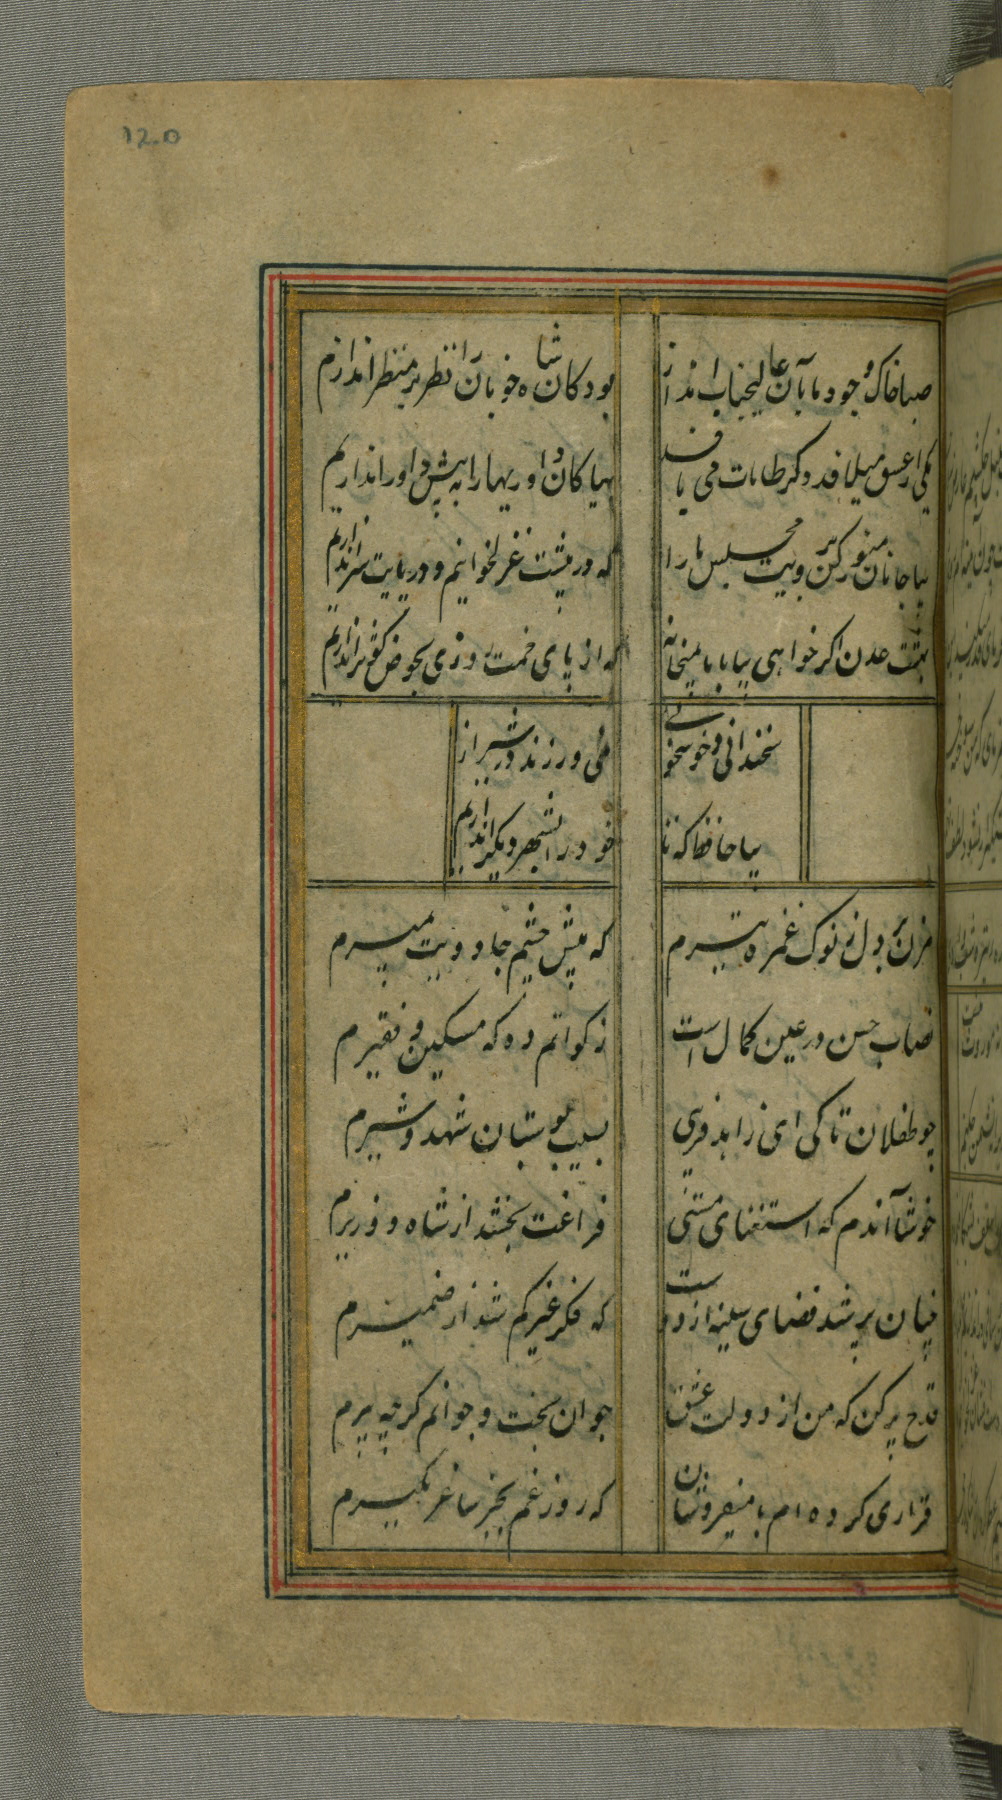 صبا خاک وجود ما بآن عالیجناب انداز
بود کان شاه خوبان را نظر بر منظر اندازم
یکی از عقل میلافد دگر طامات می بافد
بیا کان داوریها را به پیش داور اندازیم
بیا جانان منور کن برویت مجلس ما را
که در پیشت غزلخوانیم و در پایت سر اندازیم
بهشت عدن اگر خواهی بیا با ما بمیخانه
که از پای خمت روزی بحوض کوثر اندازیم
سخندانی و خوشخوانی
نمی ورزند در شیراز
بیا حافظ که تا
خود را بشهر دیگر اندازیم
مزن بر دل ز نوک غمزه تیرم
که پیش چشم جادویت بمیرم
نصاب حسن در عین کمال است
زکواتم ده که مسکین و فقیرم
چو طفلان تا کی ای زاهد فریبی
بسیب بوستان شهد و شیرم
خوشا آندم که استغنای مستی
فراغت بخشد از شاه و وزیرم
چنان پر شد فضای سینه از دوست
که فکر غیر گم شد از ضمیرم
قدح پر کن که من از دولت عشق
جوان بخت و جوانم گرچه پیرم
قراری کرده ام با میفروشان
که روز غم بجز ساغر نگیرم